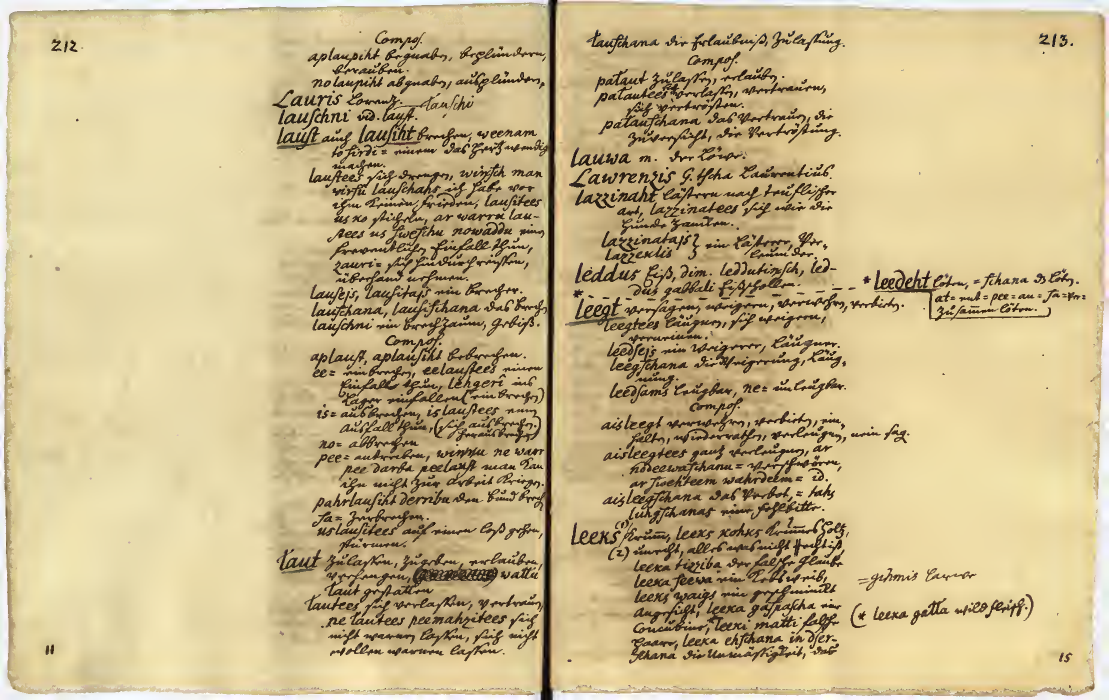 212
Compos.
aplaupiht begnaben, beplündern,
berauben.
nolaupiht abgnaben, ausplündern,
Lauris Lorenz. lauschi
lauschni vid. laust.
laust auch lausiht brechen, weenam
to sirdi = einem das Hertz wendig
machen.
laustees sich drengen, winsch man
wirsu lauschahs ich habe vor
ihm keinen frieden, lausitees
us xo sticheln, ar warru lau-
stees us sweschu nowaddu einen
freventlichen Einfall thun,
zauri= sich hindurch reissen,
überhand nehmen.
lausejs, lausitajs ein Brecher.
lauschana, lausischana das brech
lauschni ein brech Zaum, Gebiß.
Compos.
aplaust, aplausiht bebrechen.
ee= einbrechen, eelaustees einen
Einfall thun, lehgeri ins
Lager einfallen (einbrechen)
is= ausbrechen, islaustees einen
ausfall thun, (sich ausbrechen.
herausbrechen)
no= abbrechen
pee= antreiben, winnu ne warr
pee darba peelaust man kan
ihn nicht zur arbeit kriegen.
pahrlausiht derribu den bund brech
sa= zerbrechen.
uslausitees auf einen loß gehen,
stürmen.
laut zulassen, zugeben, erlauben,
verhengen, wallu
laut gestatten
lautees sich verlassen, vertrauen,
ne lautees peemahzitees sich
nicht warnen lassen, sich nicht
wollen warnen lassen.
11
lauschana die Erlaubniß, Zulassung.
213.
Compos.
palaut zulassen, erlauben.
palautees sich verlassen, vertrauen,
sich vertrösten.
palauschana das Vertrauen, die
Zuversicht, die Vertröstung.
lauwa m. der Löwe.
Lawrenzis G. tscha Laurentius.
lazzinaht lästern nach teuflischer
art, lazzinatees sich wie die
Hunde zancken.
lazzinatajs } ein Lästerer, Ver-
lazzeklis } leumder.
leddus Eiß, dim. leddutinsch, led-
dus gabbali Eißschollen. * leedeht löten, = schana ds löten.
* leegt versagen, weigern, verwehren, verbieten. at= eet= pee= au= sa= ver=
zusammen löten.
leegtees läugnen, sich weigern,
verneinen.
leedsejs ein Weigerer, Läugner.
leegschana die Weigerung, Läug-
nung.
leedsams leugbar, ne= unleugbar.
Compos.
aisleegt verwehren, verbieten, ein,
halten, wiederrathen, verleugnen, nein sag.
aisleegtees gantz verleugnen, ar
nodeewaschanu= verschwören,
ar swehteem wahrdeem= id.
aisleegschana das Verbot, = tahs
luhgschanas eine fehlbitte.
leeks (1) krum, leeks kohks krummes holtz,
(2) unrecht, alles was nicht recht ist
leeka tizziba der falsche Glaube
leeka seewa ein Kebsweib,
leeks waigs ein geschminckt = gihmis Larwe
angesicht, leeka gaspascha eine
Concubine, leeki matti falsche (* leeka galla wild fleisch.)
Haare, leeka ehschana in dser-
schana die Unmässigkeit, das
15